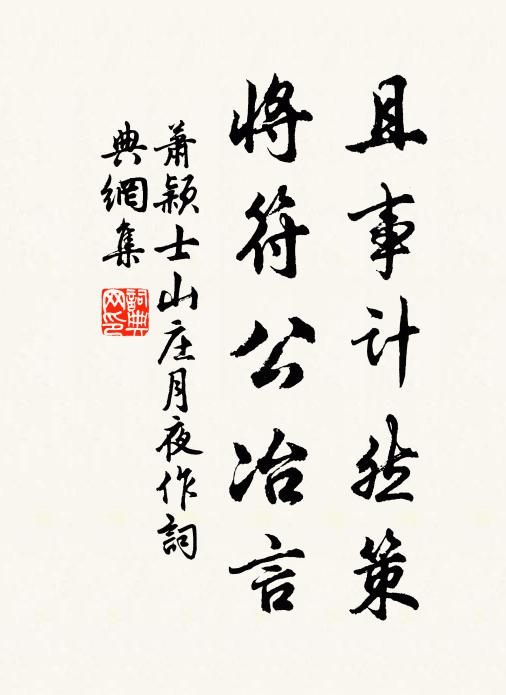 且事计然策
将符公冶言
萧颖士山庄月夜作詞
典網集
詞典网印